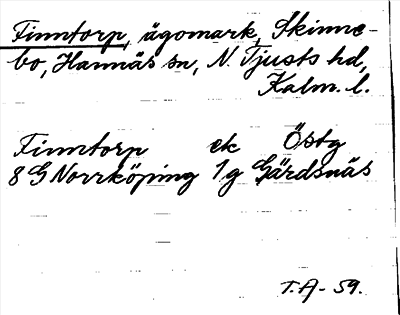 Finntorp, ägomark, Skinne-
bo, Hannäs sn, N. Tjusts hd,
Kalm. l.
Finntorp ek Östg
8 G Norrköping 1 g Gärdsnäs
T.A-59.